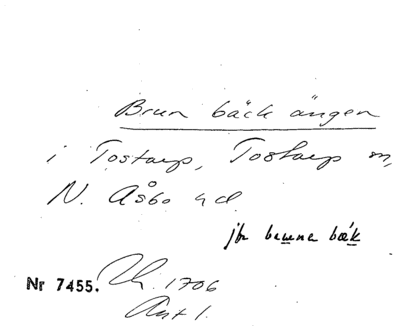 Brun bäck ängen
i Tostarp, Tostarp sn,
N. Åsbo hd
jfr bruna bäk
Nr 7455. Lh. 1706
Akt 1.